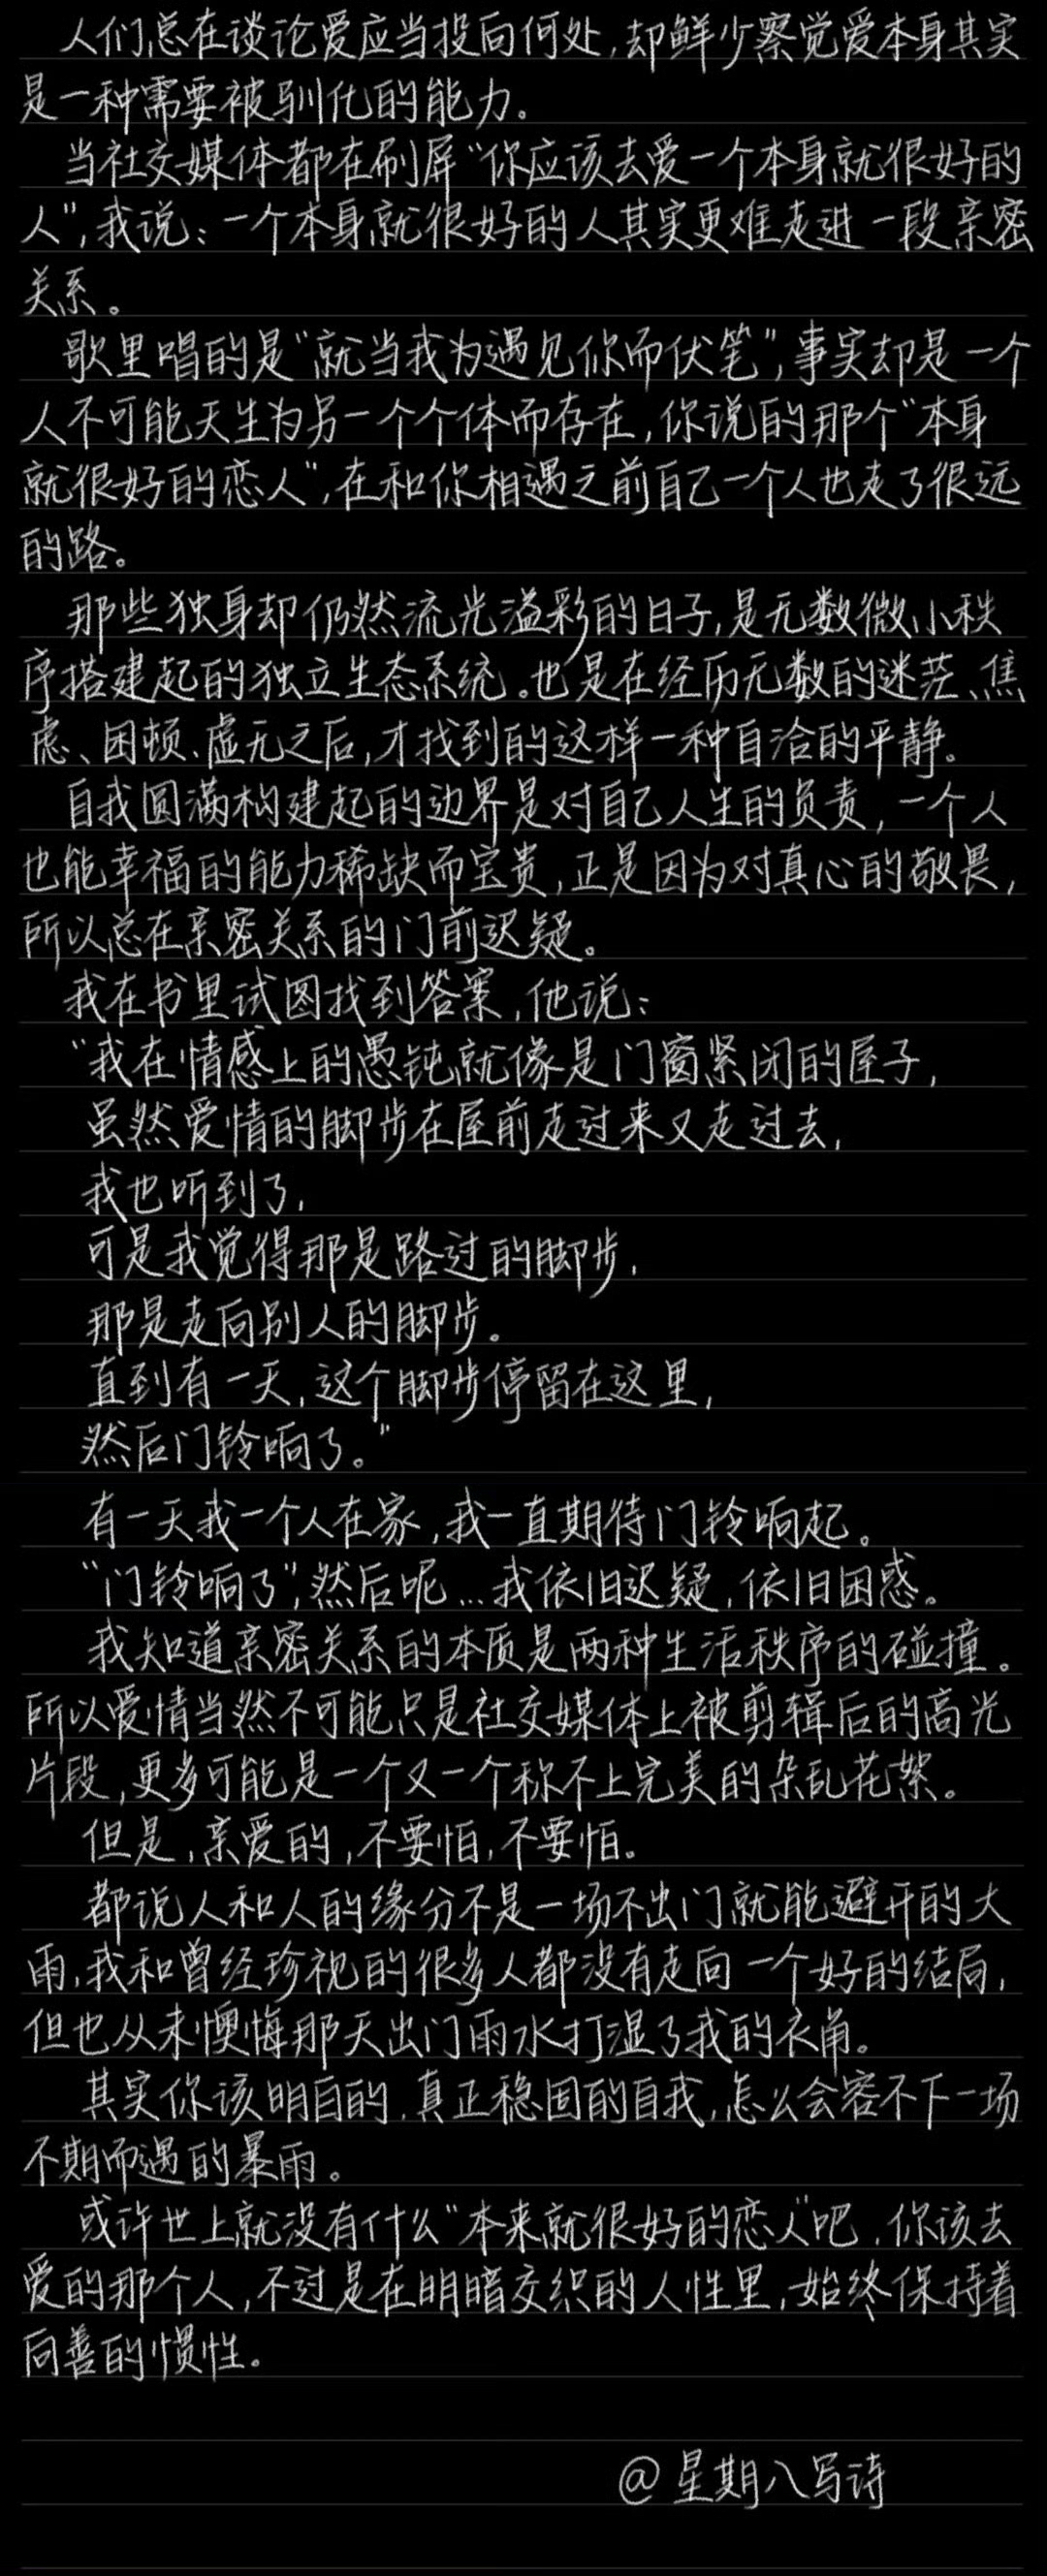 人们总在谈论爱应当投向何处,却鲜少察觉爱本身其实
是一种需要被驯化的能力。
当社交媒体都在刷屏“你应该去爱一个本身就很好的
人”,我说:一个本身就很好的人其实更难走进一段亲密
关系。
歌里唱的是“就当我为遇见你而伏笔”,事实却是一个
人不可能天生为另一个个体而存在,你说的那个“本身
就很好的恋人”,在和你相遇之前自己一个人也走了很远
的路。
那些独身却仍然流光溢彩的日子,是无数微小秩
序搭建起的独立生态系统。也是在经历无数的迷茫、焦
虑、困顿、虚无之后,才找到的这样一种自洽的平静。
自我圆满构建起的边界是对自己人生的负责,一个人
也能幸福的能力稀缺而宝贵,正是因为对真心的敬畏,
所以总在亲密关系的门前迟疑。
我在书里试图找到答案,他说:
“我在情感上的愚钝就像是门窗紧闭的屋子,
虽然爱情的脚步在屋前走过来又走过去,
我也听到了,
可是我觉得那是路过的脚步,
那是走向别人的脚步。
直到有一天,这个脚步停留在这里,
然后门铃响了。”
有一天我一个人在家,我一直期待门铃响起。
“门铃响了”,然后呢...我依旧迟疑,依旧困惑。
我知道亲密关系的本质是两种生活秩序的碰撞。
所以爱情当然不可能只是社交媒体上被剪辑后的高光
片段,更多可能是一个又一个称不上完美的杂乱花絮。
但是,亲爱的,不要怕,不要怕。
都说人和人的缘分不是一场不出门就能避开的大
雨,我和曾经珍视的很多人都没有走向一个好的结局,
但也从未懊悔那天出门雨水打湿了我的衣角。
其实你该明白的,真正稳固的自我,怎么会容不下一场
不期而遇的暴雨。
或许世上就没有什么“本来就很好的恋人”吧,你该去
爱的那个人,不过是在明暗交织的人性里,始终保持着
向善的惯性。
@星期八写诗